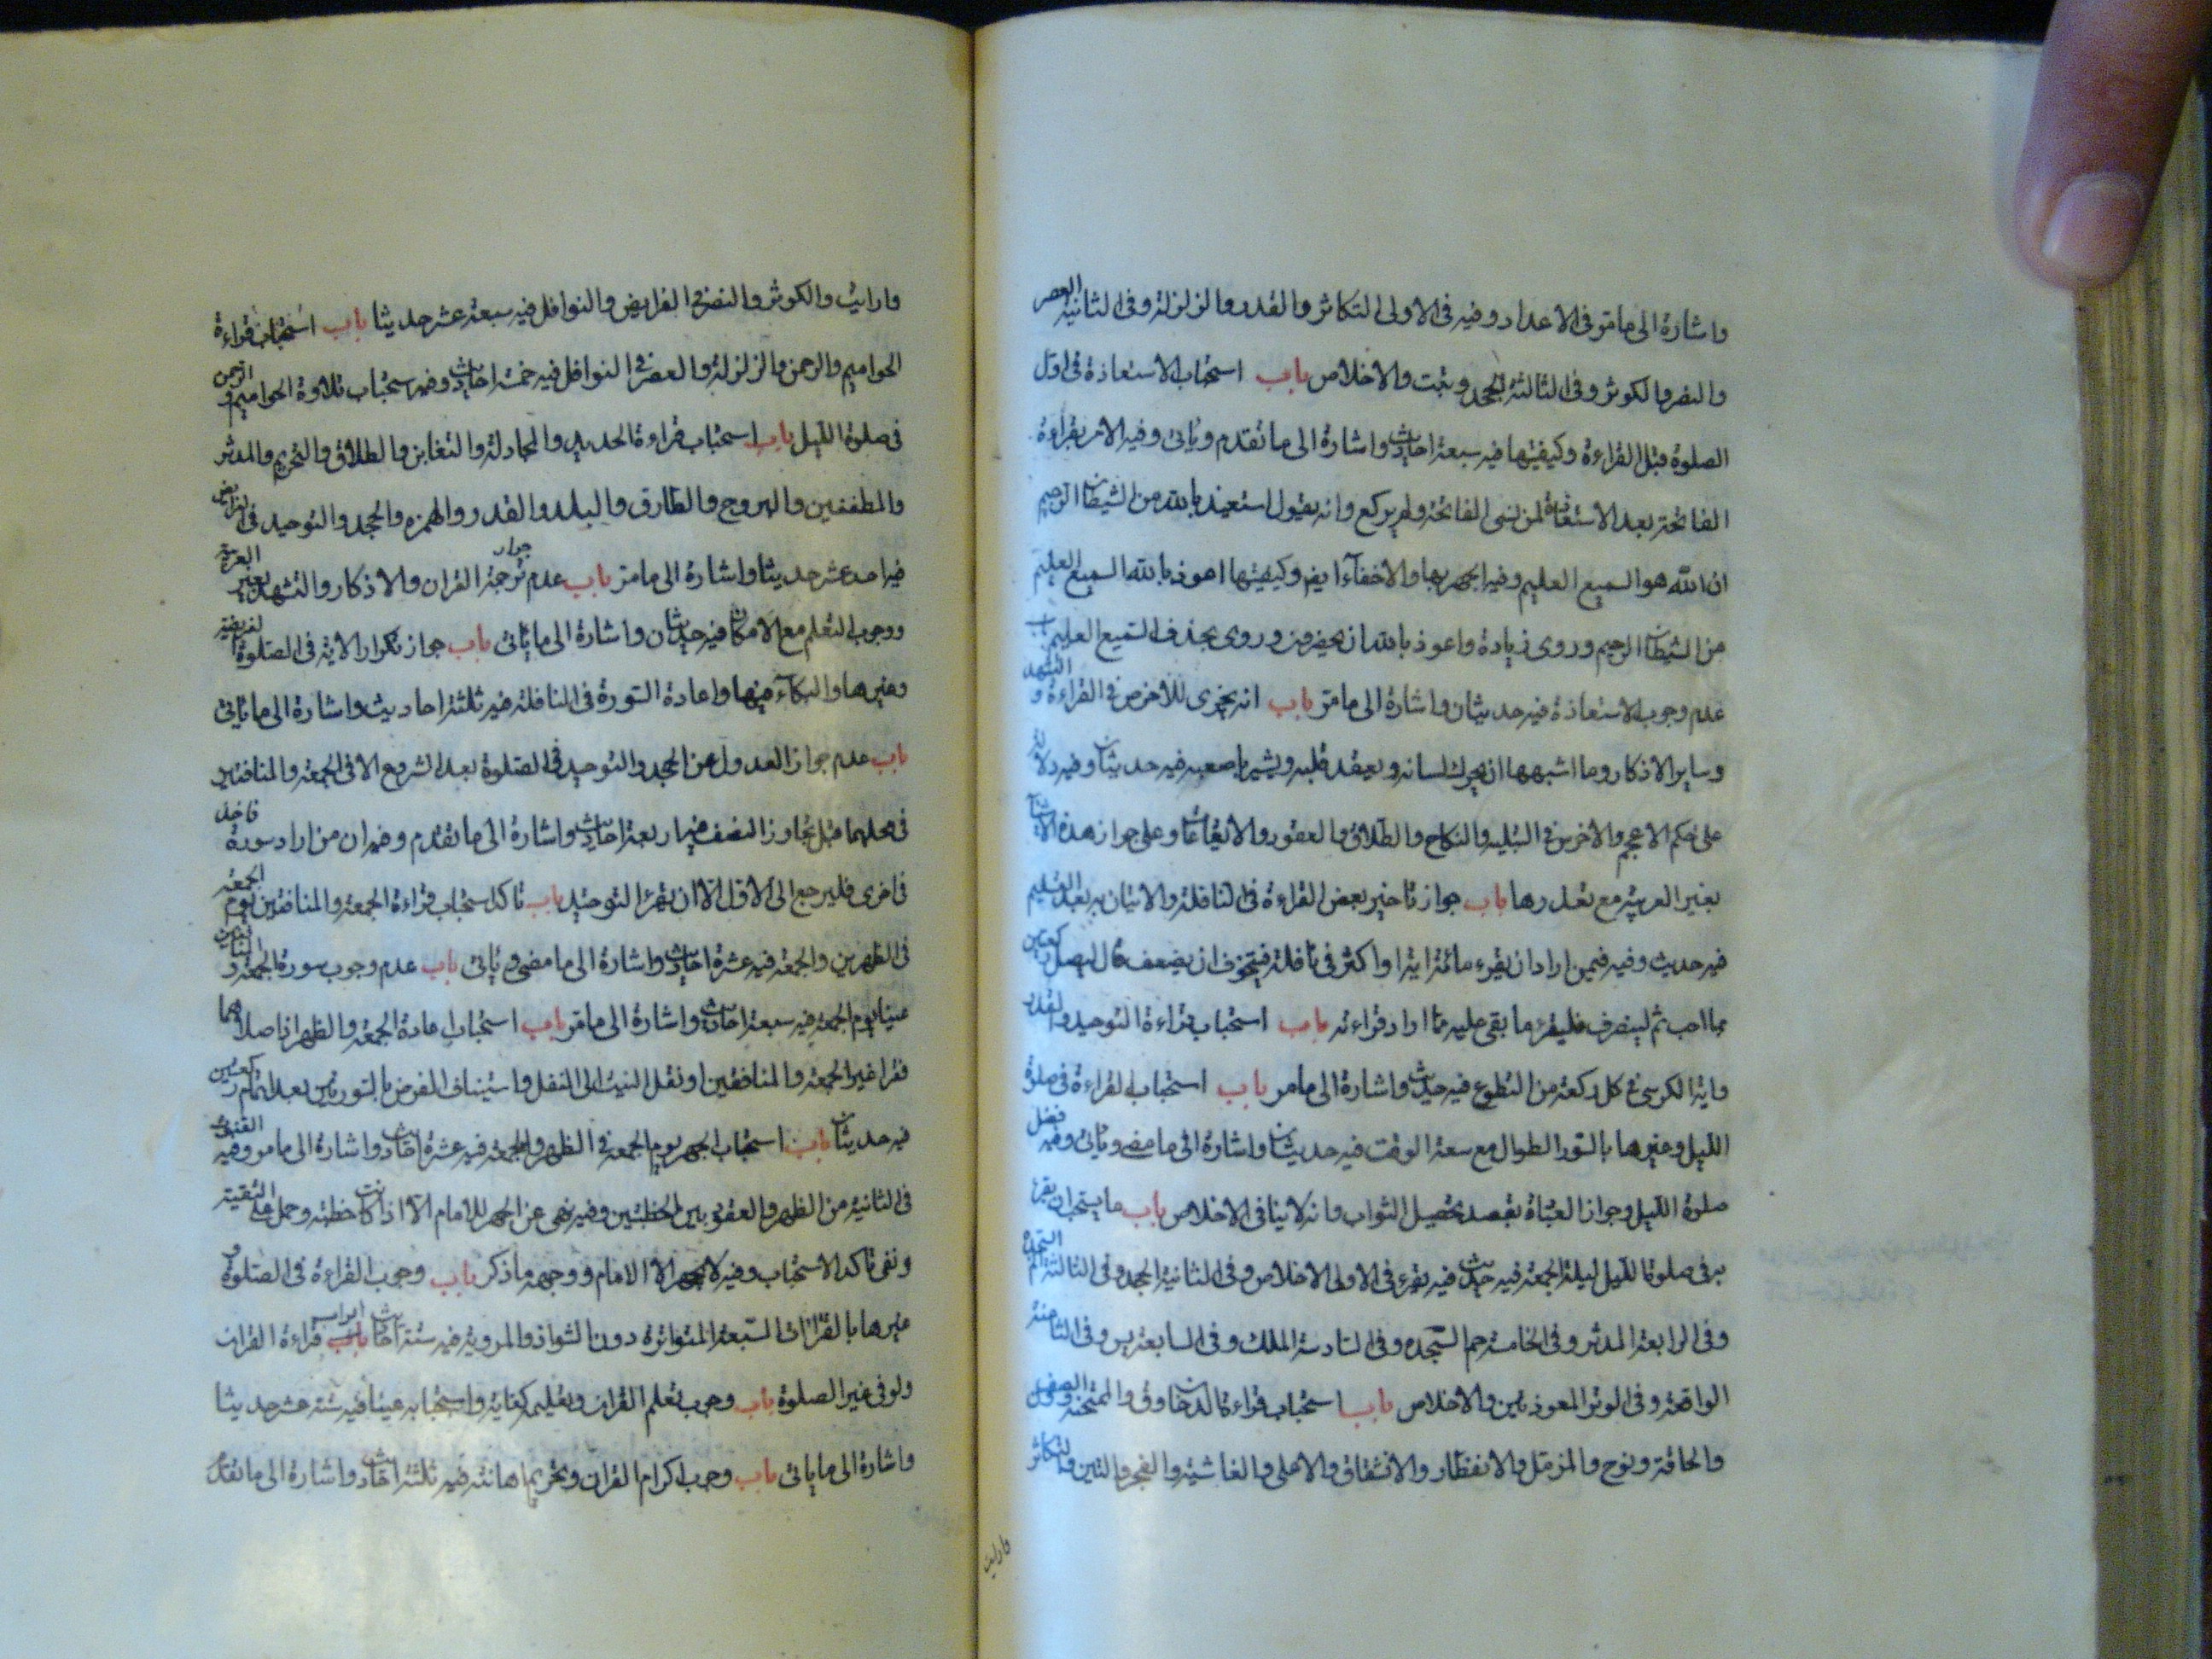 واشارة الى ما مر فى الاعداد وفيه فى الاولى التكاثر والقدر والزلزلة وفى الثانية العصر
والنصر والكوثر وفى الثالثة الجحد وتبت والاخلاص باب استحباب الاستعاذة فى اول
الصلوة قبل القراءة وكيفيتها فيه سبعة احاديث واشارة الى ما تقدم وياتى وفيه الامر بقراءة
الفاتحة بعد الاستعاذة لمن نسى الفاتحة ولم يركع وانه يقول استعيذ بالله من الشيطان الرجيم
ان الله هو السميع العليم وفيه الجهر بها والاخفآء ايضا وكيفيتها اعوذ بالله السميع العليم
من الشيطان الرجيم وروى زيادة واعوذ بالله ان يحضرون وروى بحذف السميع العليم باب
عدم وجوب الاستعاذة فيه حديثان واشارة الى ما مر باب انه يجزى للاخرس فى القراءة والتشهد
وساير الاذكار وما اشبهها ان يحرك لسانه ويعقد قلبه ويشير باصعبه فيه حديثان وفيه دلالة
على حكم الاعجم والاخرس فى التلبية والنكاح والطلاق والعقود والايقاعات وعلى جواز هذه الاشيآ
بغير العربية مع تعذرها باب جواز تاخير بعض القراءة فى النافلة والاتيان به بعد التسليم
فيه حديث وفيه فيمن اراد ان يقرء مائة اية او اكثر فى نافلة فيتخوف ان يضعف قال ليصل ركعتين
بما احب ثم لينصرف فليقرء ما بقى عليه مما اراد قراءته باب استحباب قراءة التوحيد والقدر
واية الكرسى فى كل ركعة من التطوع فيه حديث واشارة الى ما مر باب استحباب القراءة فى صلوة
الليل وغيرها بالسور الطوال مع سعة الوقت فيه حديثان واشارة الى ما مضى وياتى وفيه فضل
صلوة الليل وجواز العبادة بقصد تحصيل الثواب وانه لا ينافى الاخلاص باب ما يستحب ان يقرء
به فى صلوة الليل ليلة الجمعة فيه حديث فيه يقرء فى الاولى الاخلاص وفى الثانية الجحد وفى الثالثة الم السجدة
وفى الرابعة المدثر وفى الخامسة حم السجده وفى السادسة الملك وفى السابعة يس وفى الثامنة
الواقعة وفى الوتر المعوذتين والاخلاص باب استحباب قراءة الدخان وق والممتحنة والصف
والحاقة ونوح والمزمل والانفطار والانشقاق والاعلى والغاشية والفجر والتين والتكاثر
وارايت
وارايت والكوثر والنصر فى الفرايض والنوافل فيه سبعة عشر حديثا باب استحباب قراءة
الحواميم والرحمن والزلزلة والعصر فى النوافل فيه خمسة احاديث وفيه استحباب تلاوة الحواميم والرحمن
فى صلوة الليل باب استحباب قراءة الحديد والمجادلة والتغابن والطلاق والتحريم والمدثر
والمطففين والبروج والطارق والبلد والقدر والهمزه والجحد والتوحيد فى الفرايض
فيه احد عشر حديثا واشارة الى ما مر باب عدم جواز ترجمة القران والاذكار والتشهد بغير العربية
ووجوب التعلم مع الامكان فيه حديثان واشارة الى ما ياتى باب جواز تكرار الاية فى الصلوة الفريضة
وغيرها والبكآء فيها واعادة السورة فى النافلة فيه ثلثة احاديث واشارة الى ما ياتى
باب عدم جواز العدول عن الجحد والتوحيد فى الصلوة بعد الشروع الا فى الجمعة والمنافقين
فى محلهما قبل تجاوز النصف فيه اربعة احاديث واشارة الى ما تقدم وفيه ان من اراد سورة فاخذ
فى اخرى فليرجع الى الاول الا ان يقرء التوحيد باب تاكد استحباب قراءة الجمعة والمنافقين يوم الجمعة
فى الظهرين والجمعة فيه عشرة احاديث واشارة الى ما مضى وياتى باب عدم وجوب سورة الجمعة والمنافقين
عينا يوم الجمعة فيه سبعة احاديث واشارة الى ما مر باب استحباب اعادة الجمعة والظهر اذا صلاهما
فقرا غير الجمعة والمنافقين او نقل النية الى النفل واستيناف الفرض بالسورتين بعد اتمام ركعتين
فيه حديثان باب استحباب الجهر يوم الجمعة فى الظهر والجمعة فيه عشرة احاديث واشارة الى ما مر وفيه القنوت
فى الثانية من الظهر والعقود بين الخطبتين وفيه نهى عن الجهر للامام الا اذا كانت خطبة وحمل على التقية
ونفى تاكد الاستحباب وفيه لا يجهر الا الامام ووجهه ما ذكر باب وجوب القراءة فى الصلوة و
غيرها بالقراءات السبعة المتواترة دون الشواذ والمروية فيه ستة احاديث ابواب قراءة القران
ولو فى غير الصلوة باب وجوب تعلم القران وتعليمه كفاية واستحبابه عينا فيه ستة عشر حديثا
واشارة الى ما ياتى باب وجوب اكرام القران وتحريم اهانته فيه ثلثة احاديث واشارة الى ما تقدم